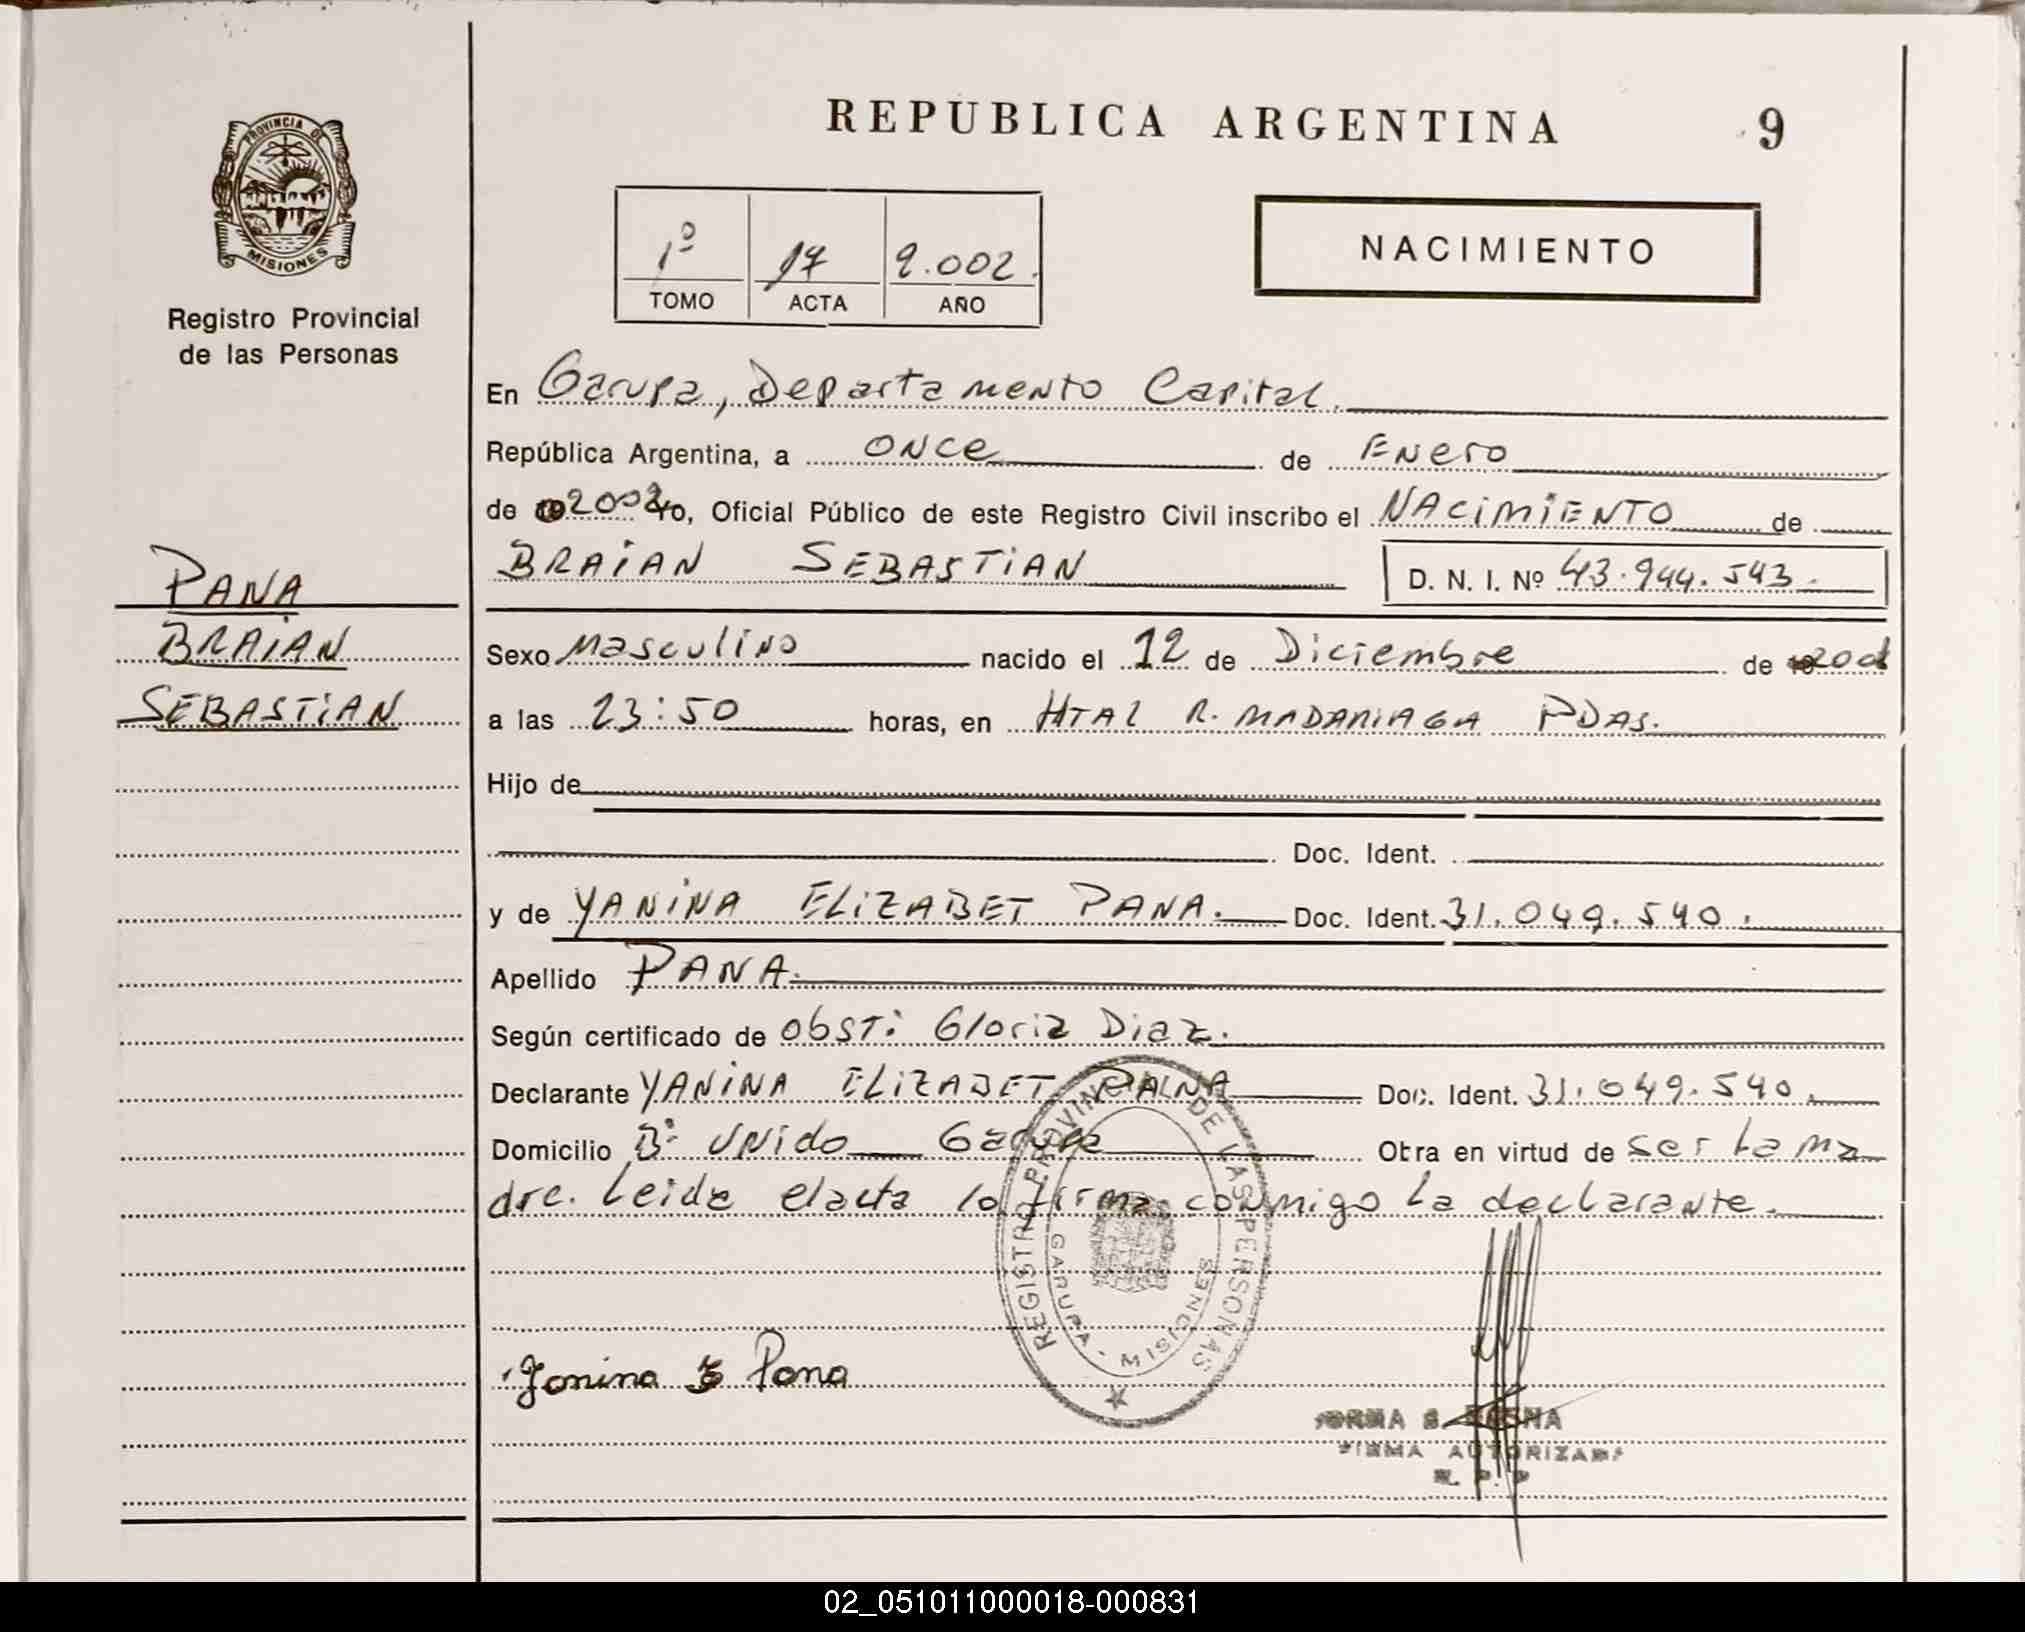 REPUBLICA ARGENTINA
9
PROVINCIA DE
MISIONES
Registro Provincial
de las Personas
1º 17 2.002.
TOMO ACTA AÑO
NACIMIENTO
En Garupa, Departamento Capital.
República Argentina, a once de Enero
de 2002 Yo, Oficial Público de este Registro Civil inscribo el NACIMIENTO de
BRAIAN SEBASTIAN D. N. I. Nº 43.944.543.
PANA
BRAIAN
SEBASTIAN
Sexo Masculino nacido el 12 de Diciembre de 2001
a las 23:50 horas, en HTAL R. MADARIAGA PDAS.
Hijo de
Doc. Ident.
y de YANINA ELIZABET PANA. Doc. Ident. 31.049.540.
Apellido PANA.
Según certificado de Obst: Gloria Diaz.
Declarante YANINA ELIZABET PANA Doc. Ident. 31.049.540.
Domicilio Bº Unido Garupa Otra en virtud de ser La ma
dre. Leida el acta la firma conmigo La declarante.
REGISTRO PROVINCIAL DE LAS PERSONAS
GARUPA - MISIONES
Yanina E Pana
FIRMA AUTORIZADA
R. P. P
02_051011000018-000831